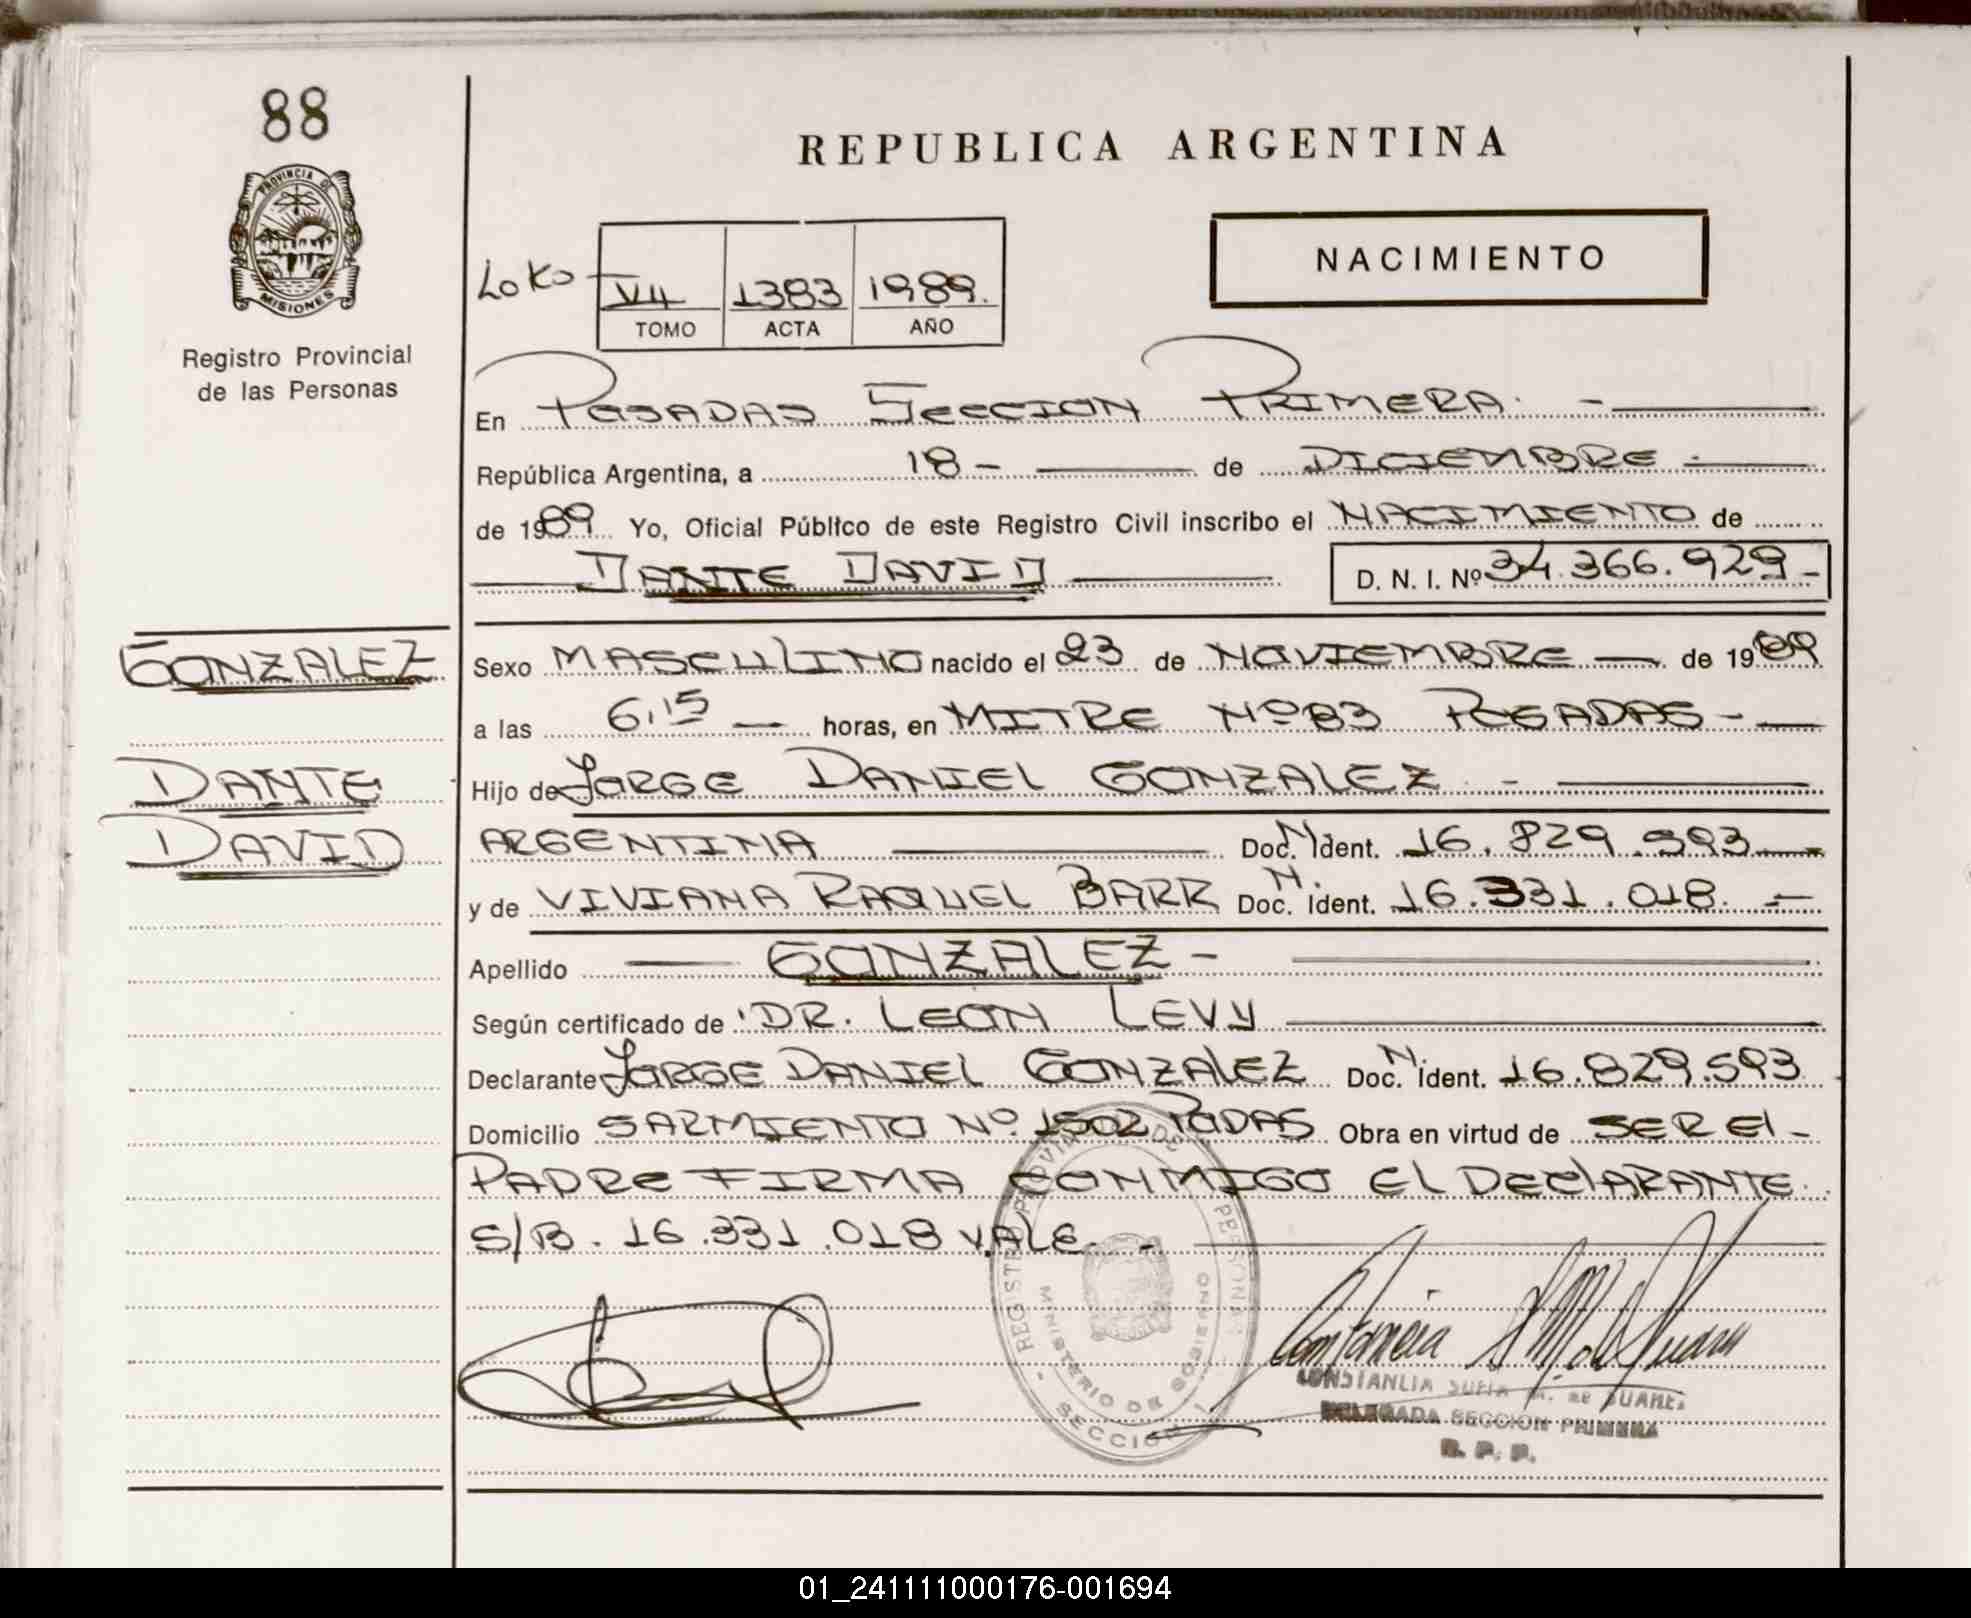 88
REPUBLICA ARGENTINA
PROVINCIA DE
MISIONES
Registro Provincial
de las Personas
VII 1383 1989.
TOMO ACTA AÑO
NACIMIENTO
En POSADAS SECCION PRIMERA. -
República Argentina, a 18 - de DICIEMBRE -
de 1989 Yo, Oficial Público de este Registro Civil inscribo el NACIMIENTO de
DANTE DAVID D. N. I. Nº 34.366.929-
GONZALEZ
DANTE
DAVID
Sexo MASCULINO nacido el 23 de NOVIEMBRE — de 1989
a las 6,15 — horas, en MITRE Nº 83 POSADAS - —
Hijo de JORGE DANIEL GONZALEZ. -
ARGENTINA Doc. N. Ident. 16.829.593 —
y de VIVIANA RAQUEL BARR Doc. N. Ident. 16.331.018. —
Apellido — GONZALEZ -
Según certificado de DR. LEON LEVY
Declarante JORGE DANIEL GONZALEZ Doc. N. Ident. 16.829.593
Domicilio SARMIENTO Nº 1502 PODAS Obra en virtud de SER El -
PADRE FIRMA CONMIGO El DEClARANTE.
S/B. 16.331.018 VALE. -
REGISTRO PROVINCIAL DE PERSONAS
MINISTERIO DE GOBIERNO
SECCION 1
CONSTANCIA SOFIA M. de SUAREZ
DELEGADA SECCION PRIMERA
R. P. P.
01_241111000176-001694